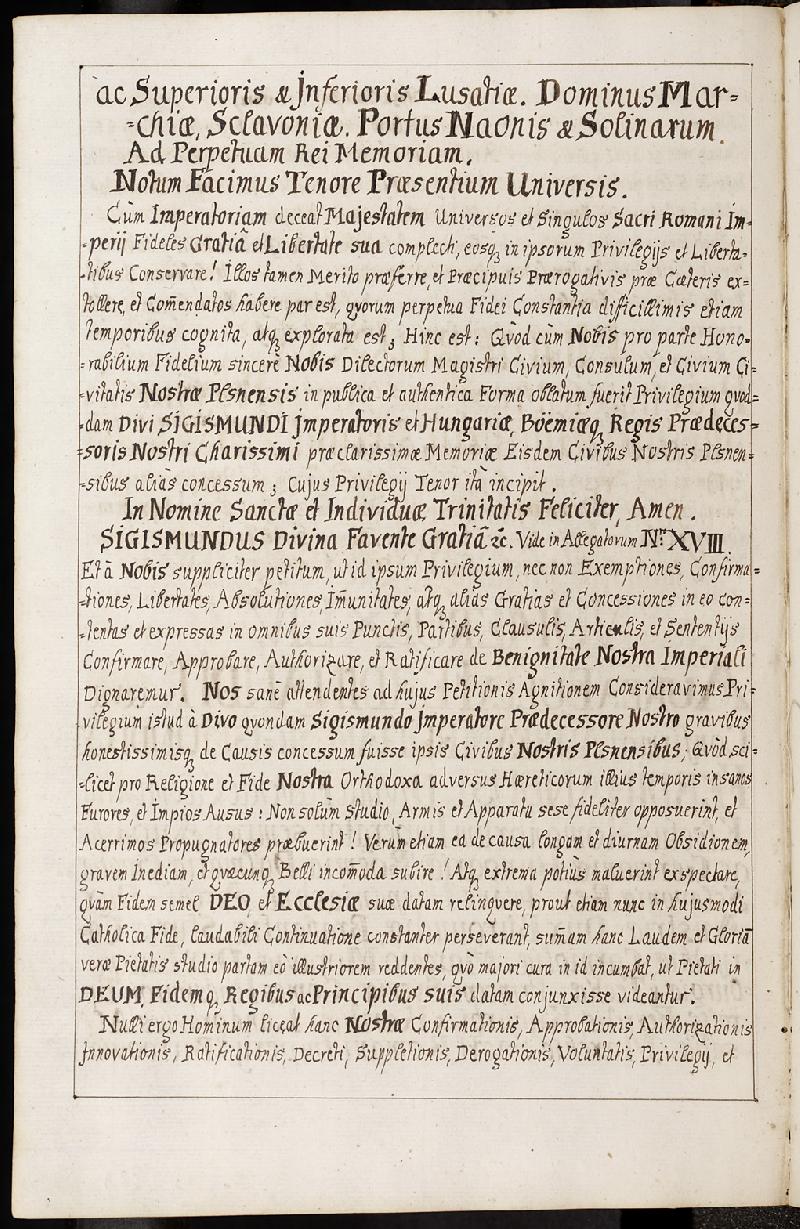 ac Superioris & Inferioris Lusatiæ. Dominus Mar=
=chiæ, Sclavoniæ. Portus Naonis & Solinarum.
Ad Perpetuam Rei Memoriam.
Notum Facimus Tenore Præsentium Universis.
Cùm Imperatoriam deceat Majestatem Universos et Singulos Sacri Romani Im=
=perij Fideles Gratiâ et Libertate sua complecti, eosq₃ in ipsorum Privilegijs et Liberta=
=tibus Conservare! Illos tamen Merito præferre, et Præcipuis Prærogativis præ Cæteris ex=
tollere, et Com̄endatos habere par est, qvorum perpetua Fidei Constantia difficillimis etiam
temporibus cognita, atq₃ explorata est; Hinc est: Qvòd cùm Nobis pro parte Hono=
=rabilium Fidelium sincerè Nobis Dilectorum Magistri Civium, Consulum, et Civium Ci=
=vitatis Nostræ Plsnensis in publica et authentica Forma oblatum fuerit Privilegium qvod=
=dam Divi SIGISMUNDI Imperatoris et Hungariæ, Boëmiæq₃ Regis Prædeces=
=soris Nostri Charissimi præclarissimæ Memoriæ Eisdem Civibus Nostris Plsnen=
=sibus aliàs concessum; Cujus Privilegij Tenor ità incipit.
In Nomine Sanctæ et Individuæ Trinitatis Feliciter, Amen.
SIGISMUNDUS Divina Favente Gratiâ ꝛc. Vide in Allegatorum Nrº XVIII.
Et à Nobis suppliciter petitum, ut id ipsum Privilegium, nec non Exemptiones, Confirma=
=tiones, Libertates, Absolutiones, Im̄unitates, atq₃ alias Gratias et Concessiones in eo con=
=tentas et expressas in omnibus suis Punctis, Partibus, Clausulis, Articulis, et Sententijs
Confirmare, Approbare, Authorizare, et Ratificare de Benignitate Nostra Imperiali
Dignaremur. Nos sanè attendentes ad hujus Petitionis Agnitionem Consideravimus Pri=
vilegium istud à Divo qvondam Sigismundo Imperatore Prædecessore Nostro gravibus
honestissimisq₃ de Causis concessum fuisse ipsis Civibus Nostris Plsnensibus; Qvòd sci=
=licet pro Religione et Fide Nostra Orthodoxa adversus Hæreticorum illius temporis insanos
Furores, et Impios Ausus: Non solùm Studio, Armis et Apparatu sese fideliter opposuerint, et
Acerrimos Propugnatores præbuerint! Verùm etiam ea de causa longam et diurnam Obsidionem,
gravem Inediam, et qvæcunq₃ Belli incom̄oda subire! Atq₃ extrema potiùs maluerint exspectare,
qvàm Fidem semel DEO, et Ecclesiæ suæ datam relinqvere, prout etiam nunc in hujusmodi
Catholica Fide, laudabili Continuatione constanter perseverant, sum̄am hanc Laudem et Gloriā
veræ Pietatis studio partam eò illustriorem reddentes, qvò majori cura in id incumbat, ut Pietati in
DEUM, Fidemq₃, Regibus ac Principibus suis datam conjunxisse videantur.
Nulli ergo Hominum liceat hanc Nostræ Confirmationis, Approbationis, Authorizationis
Innovationis, Ratificationis, Decreti, Suppletionis, Derogationis, Voluntatis, Privilegij, et